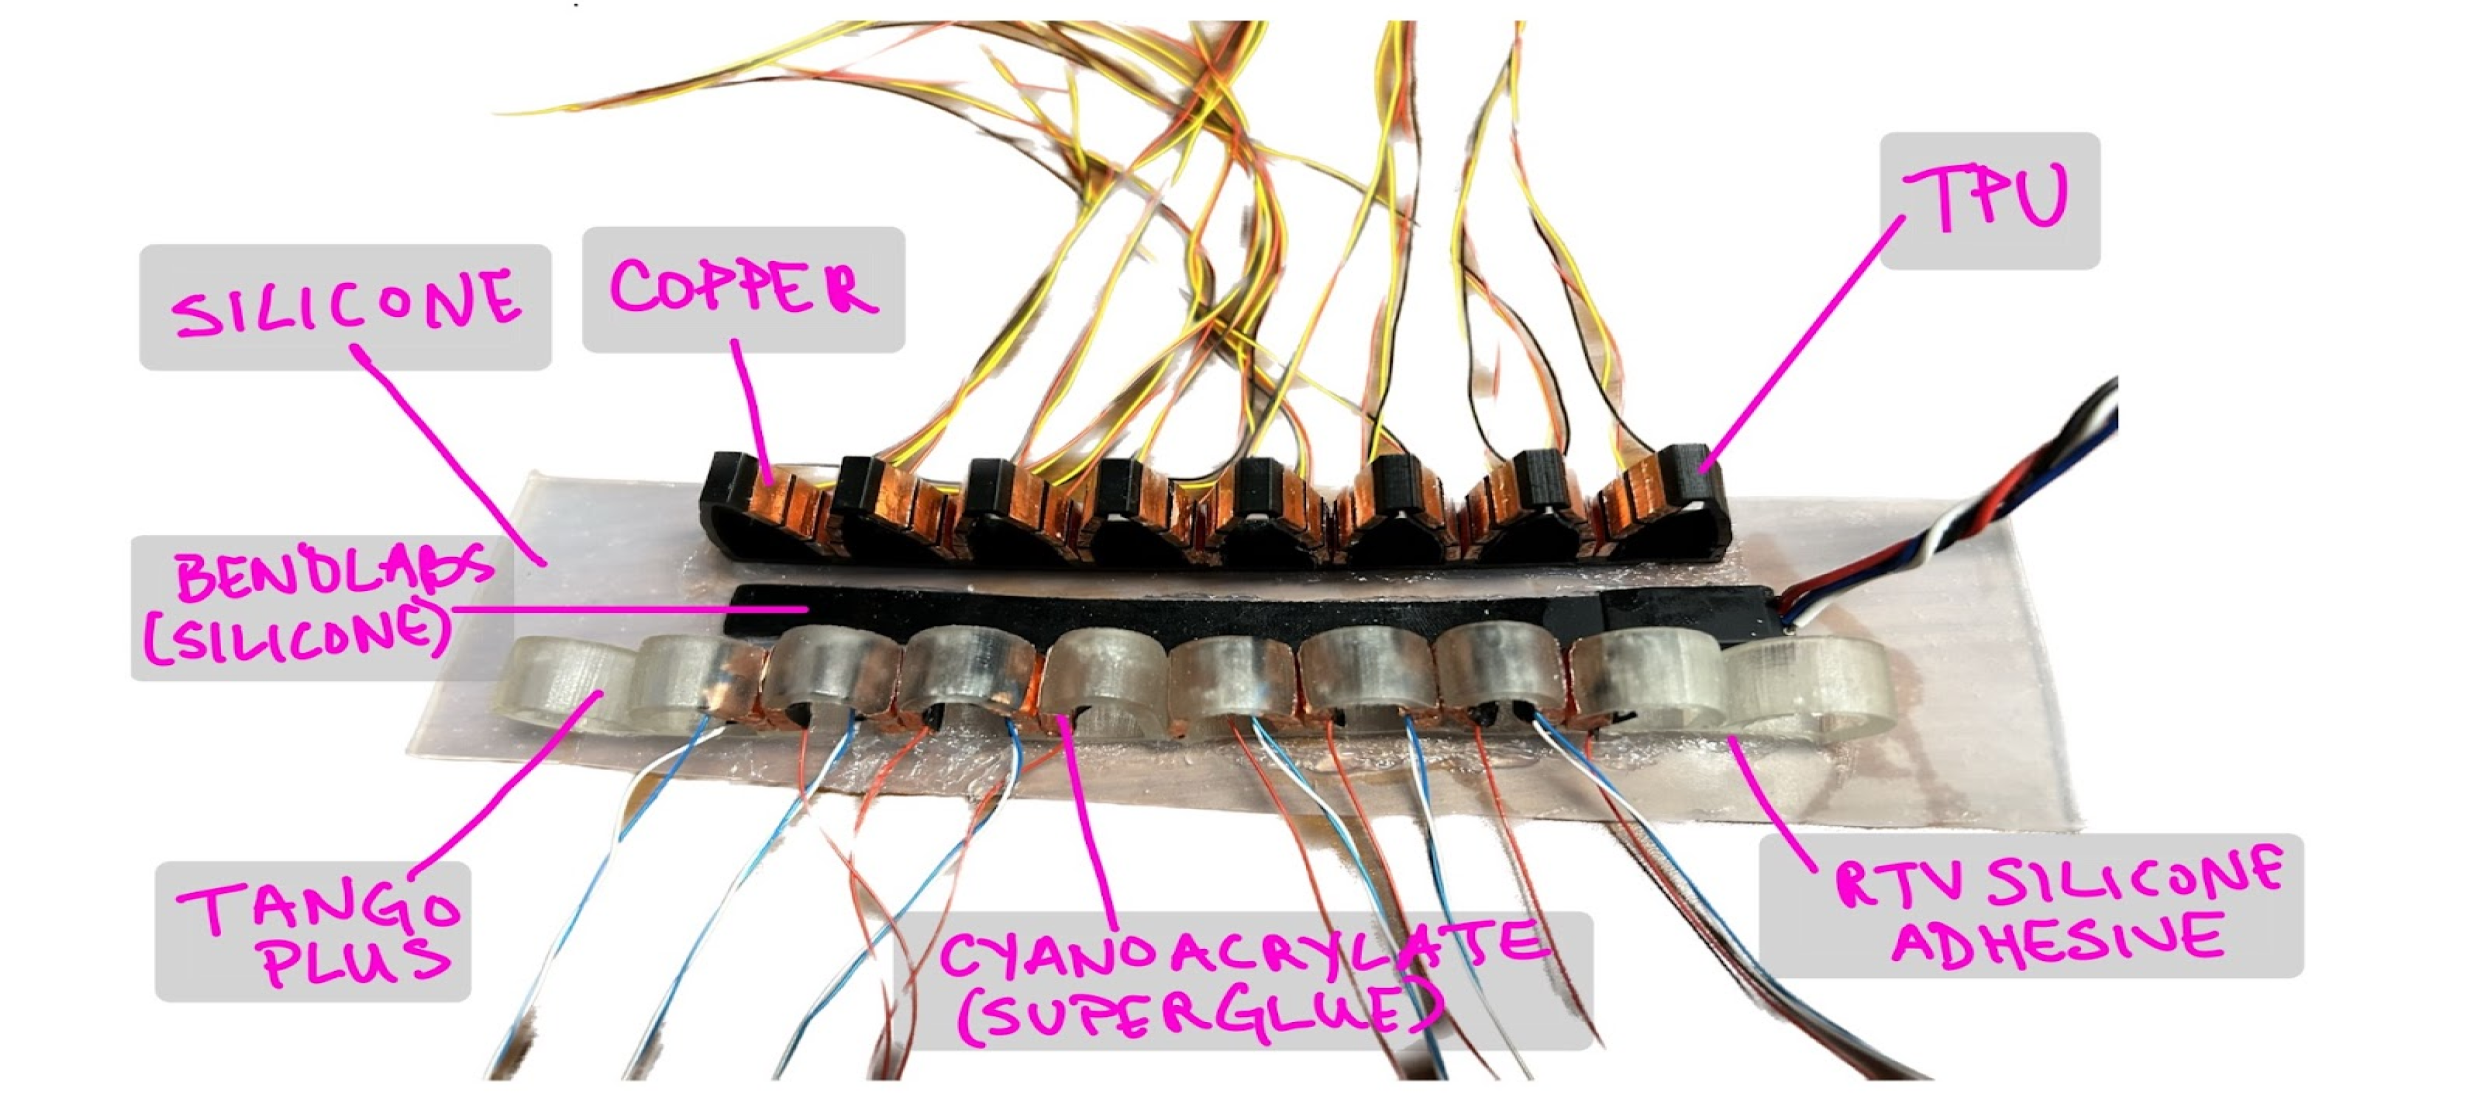 TPU
SILICONE
COPPER
BENDLABS
(SILICONE)
TANGO
PLUS
CYANOACRYLATE
(SUPERGLUE)
RTV SILICONE
ADHESIVE